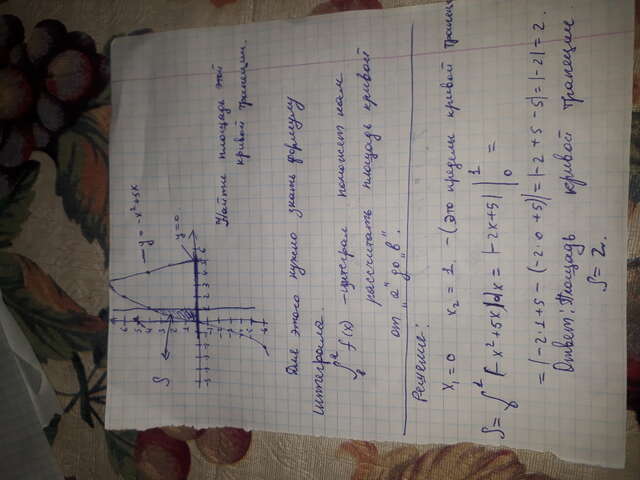 S
y = -x²+5x
y=0
Найти площадь этой
кривой трапеции.
Для этого нужно знать формулу
интеграла.
f(x) - интеграл поможет нам
рассчитать площадь кривой
от "а" до "в".
Решение:
x₁ = 0 x₂ = 1 - (это пределы кривой трапец
S = ∫ (-x²+5x)dx = |-2x+5| |¹₀ =
= |-2·1+5-(-2·0+5)| = |-2+5-5| = |-2| = 2.
Ответ: Площадь кривой трапеции
S=2.